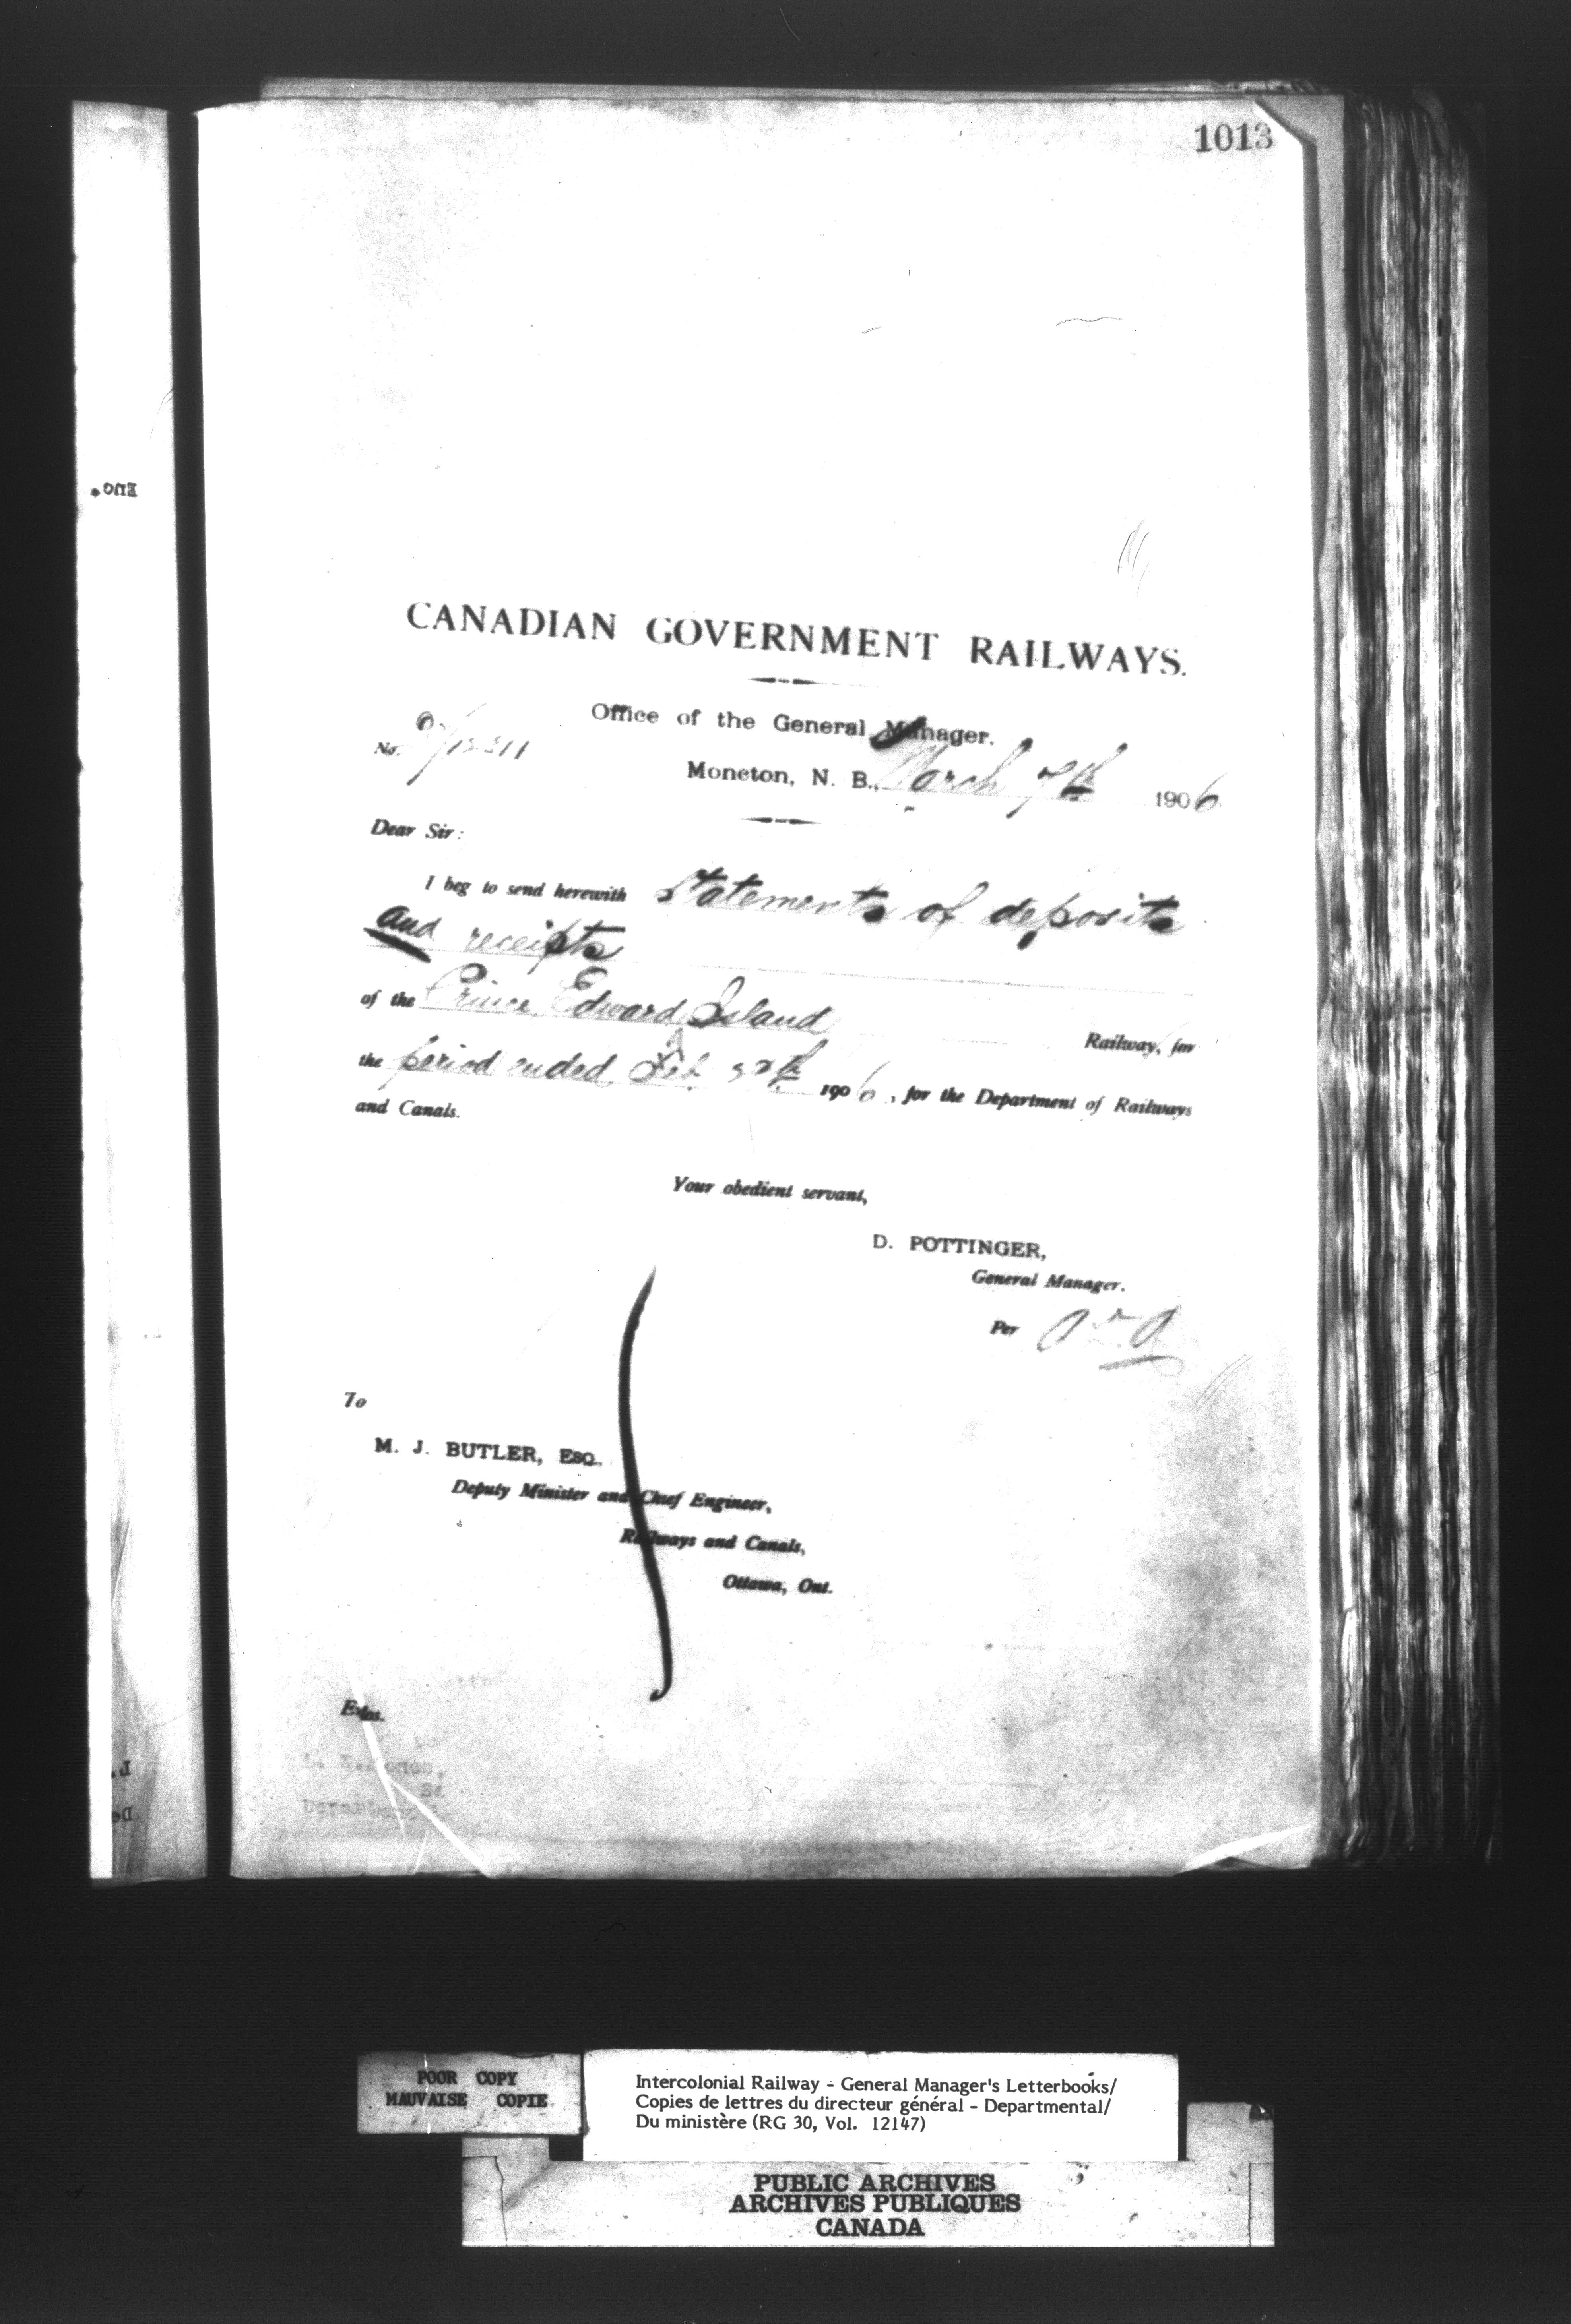 1013
Enc.
CANADIAN GOVERNMENT RAILWAYS.
Office of the General Manager.
No.
Moncton, N. B., March 7th 1906
Dear Sir:
I beg to send herewith Statements of deposits
and receipts
of the Prince Edward Island Railway, for
the period ended Feb. 1906, for the Department of Railways
and Canals.
Your obedient servant,
D. POTTINGER,
General Manager.
Per
To
M. J. BUTLER, ESQ.
Deputy Minister and Chief Engineer,
Railways and Canals,
Ottawa, Ont.
POOR COPY
MAUVAISE COPIE
Intercolonial Railway - General Manager's Letterbooks/
Copies de lettres du directeur général - Departmental/
Du ministère (RG 30, Vol. 12147)
PUBLIC ARCHIVES
ARCHIVES PUBLIQUES
CANADA